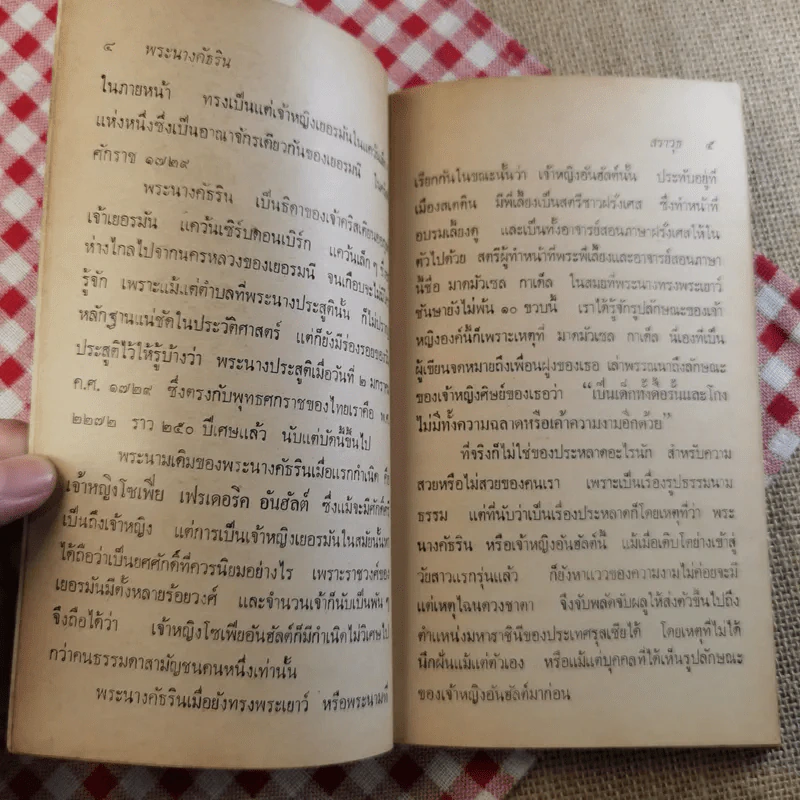 ๔ พระนางคัธริน
ในภายหน้า ทรงเป็นแต่เจ้าหญิงเยอรมันในแคว้นเล็ก
แห่งหนึ่งซึ่งเป็นอาณาจักรเดียวกันของเยอรมนี
ศักราช ๑๗๒๙
พระนางคัธริน เป็นธิดาของเจ้าคริสเตียน
เจ้าเยอรมัน แคว้นเซิร์บตอนเบิร์ก แคว้นเล็ก ๆ
ห่างไกลไปจากนครหลวงของเยอรมนี จนเกือบจะไม่มี
รู้จัก เพราะแม้แต่ตำบลที่พระนางประสูตินั้น ก็ไม่
หลักฐานแน่ชัดในประวัติศาสตร์ แต่ก็ยังมีร่องรอย
ประสูติไว้ให้รู้บ้างว่า พระนางประสูติเมื่อวันที่ ๒
ค.ศ. ๑๗๒๙ ซึ่งตรงกับพุทธศกราชของไทยเราคือ พ.ศ.
๒๒๗๒ ราว ๒๕๐ ปีเศษแล้ว นับแต่บัดนี้ขึ้นไป
พระนามเดิมของพระนางคัธรินเมื่อแรกกำเนิด คือ
เจ้าหญิงโซเฟีย เฟรเดอริค อันฮัลต์ ซึ่งแม้จะมีศักดิ์
เป็นถึงเจ้าหญิง แต่การเป็นเจ้าหญิงเยอรมันในสมัยนั้น
ได้ถือว่าเป็นยศศักดิ์ที่ควรนิยมอย่างไร เพราะราชวงศ์ของ
เยอรมันมีตั้งหลายร้อยวงศ์ และจำนวนเจ้าก็นับเป็นพัน ๆ
จึงถือได้ว่า เจ้าหญิงโซเฟียอันฮัลต์ก็มีกำเนิดไม่วิเศษไป
กว่าคนธรรมดาสามัญชนคนหนึ่งเท่านั้น
พระนางคัธรินเมื่อยังทรงพระเยาว์ หรือพระนามที่
สราวุธ ๕
เรียกกันในขณะนั้นว่า เจ้าหญิงอันฮัลต์นั้น ประทับอยู่ที่
เมืองสเตติน มีพี่เลี้ยงเป็นสตรีชาวฝรั่งเศส ซึ่งทำหน้าที่
อบรมเลี้ยงดู และเป็นทั้งอาจารย์สอนภาษาฝรั่งเศสให้ใน
ตัวไปด้วย สตรีผู้ทำหน้าที่พระพี่เลี้ยงและอาจารย์สอนภาษา
นี้ชื่อ มาดมัวเซล กาเด็ล ในสมยที่พระนางทรงพระเยาว์
ชันษายังไม่พ้น ๑๐ ขวบนี้ เราได้รู้จักรูปลักษณะของเจ้า
หญิงองค์นี้ก็เพราะเหตุที่ มาดมัวเซล กาเด็ล นี่เองที่เป็น
ผู้เขียนจดหมายถึงเพื่อนฝูงของเธอ เล่าพรรณนาถึงลักษณะ
ของเจ้าหญิงศิษย์ของเธอว่า "เป็นเด็กทั้งดื้อรั้นและโกง
ไม่มีทั้งความฉลาดหรือเค้าความงามอีกด้วย"
ที่จริงก็ไม่ใช่ของประหลาดอะไรนัก สำหรับความ
สวยหรือไม่สวยของคนเรา เพราะเป็นเรื่องรูปธรรมนาม
ธรรม แต่ที่นับว่าเป็นเรื่องประหลาดก็โดยเหตุที่ว่า พระ
นางคัธริน หรือเจ้าหญิงอันฮัลต์นี้ แม้เมื่อเติบโตย่างเข้าสู่
วัยสาวแรกรุ่นแล้ว ก็ยังหาแววของความงามไม่ค่อยจะมี
แต่เหตุไฉนดวงชาตา จึงจับพลัดจับผลูให้ส่งตัวขึ้นไปถึง
ตำแหน่งมหาราชินีของประเทศรุสเซียได้ โดยเหตุที่ไม่ได้
นึกฝันแม้แต่ตัวเอง หรือแม้แต่บุคคลที่ได้เห็นรูปลักษณะ
ของเจ้าหญิงอันฮัลต์มาก่อน